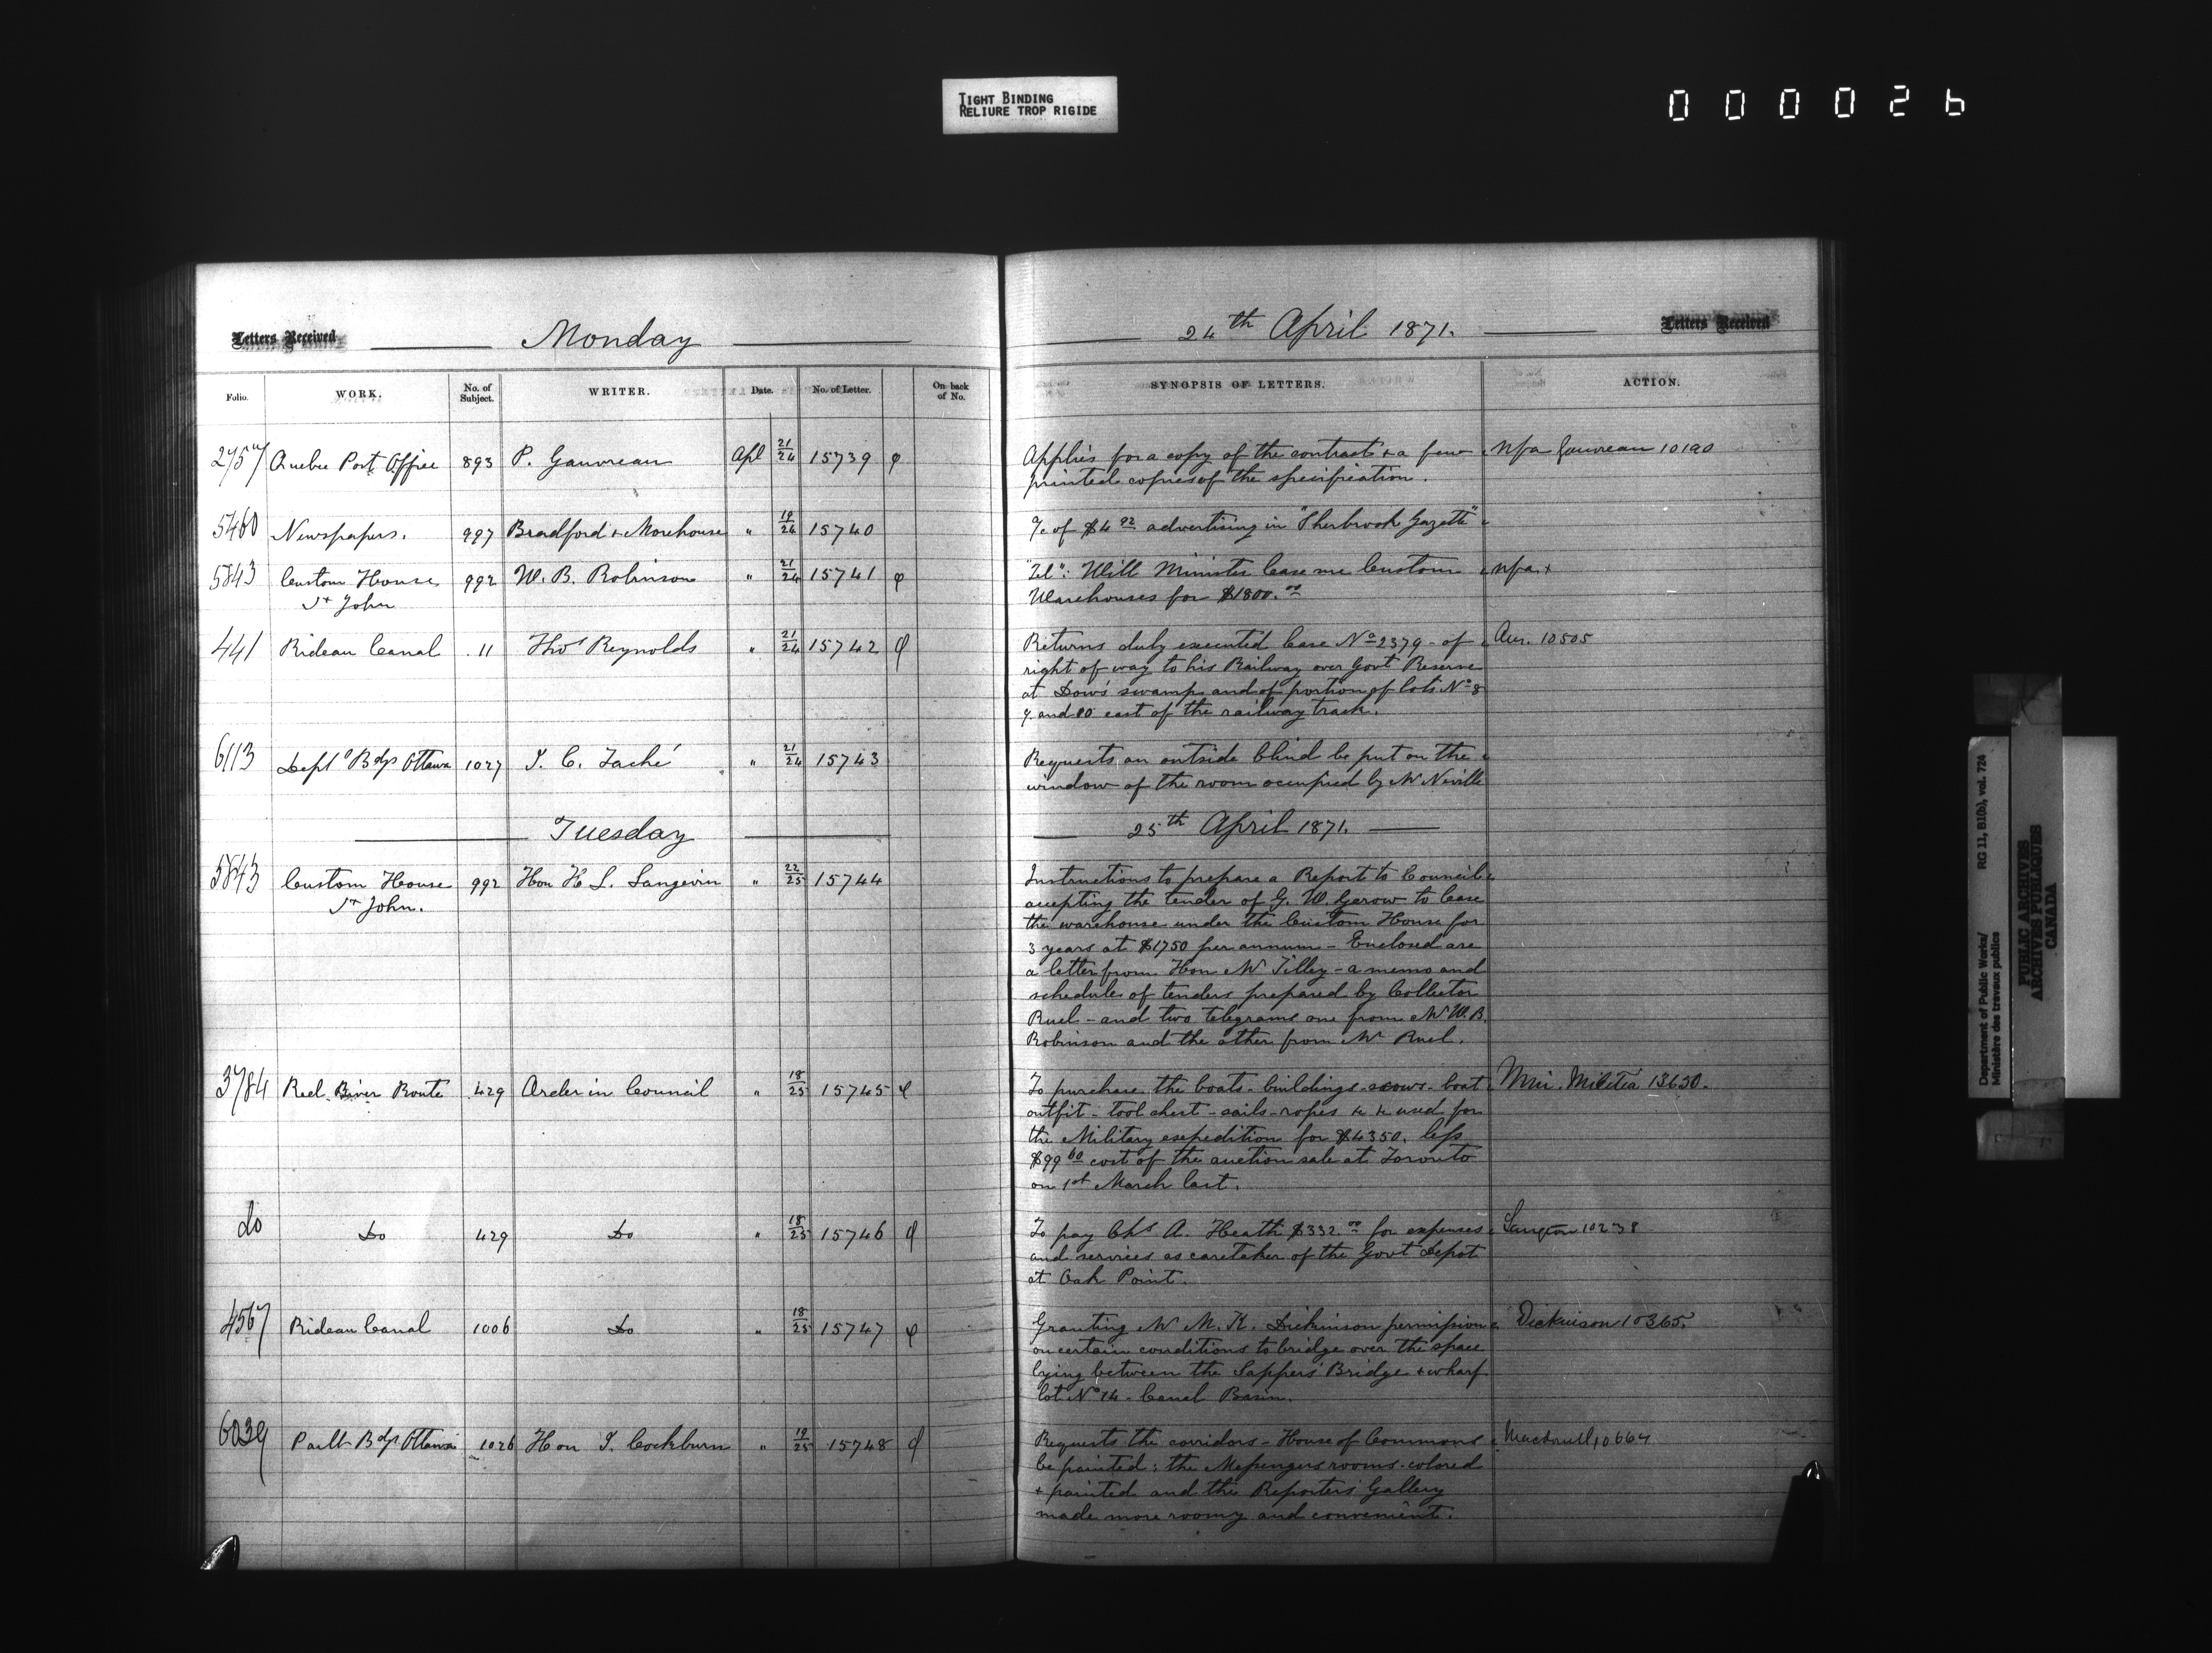 TIGHT BINDING
RELIURE TROP RIGIDE
000026
Letters Received
Monday
24th April 1871.
Letters Received
Folio. WORK. No. of Subject. WRITER. Date. No. of Letter. On back of No. SYNOPSIS OF LETTERS. ACTION.
Quebec Port Office 893 P. Gauvreau Apl 21/24 15739 φ Applies for a copy of the contract & a few
printed copies of the specification.
5460 Newspapers. 997 Bradford & Morehouse " 19/24 15740 a/c of $4 92 advertising in "Sherbrook Gazette"
5843 Custom House 992 W. B. Robinson " 21/24 15741 φ "Tel": Will Minister lease me Custom
St John Warehouses for $1800.00
441 Rideau Canal 11 Thos Reynolds " 21/24 15742 φ Returns duly executed lease No 2379 - of Aur. 10505
right of way to his Railway over Govt Reserve
at Dow's swamp and of portion of lots No 8
9 and 10 east of the railway track.
6113 Deptl Bdgs Ottawa 1027 J. C. Taché " 21/24 15743 Requests an outside blind be put on the
window of the room occupied by Mr Neville
Tuesday
25th April 1871.
5843 Custom House 992 Hon H. L. Langevin " 22/25 15744 Instructions to prepare a Report to Council
St John. accepting the tender of G. W. Gerow to lease
the warehouse under the Custom House for
3 years at $1750 per annum - Enclosed are
a letter from Hon Mr Tilley - a memo and
schedules of tenders prepared by Collector
Ruel - and two telegrams one from Mr W. B.
Robinson and the other from Mr Ruel.
3784 Red River Route 429 Order in Council " 18/25 15745 φ To purchase the boats - buildings - scows - boat Min. Militia 13630.
outfit - tool chest - sails - ropes &c &c used for
the Military expedition for $4350. less
$99 60 cost of the auction sale at Toronto
on 1st March last.
do Do 429 Do " 18/25 15746 φ To pay Chs A. Heath $332 00 for expenses Langton 10238
and services as caretaker of the Govt Depot
at Oak Point.
4567 Rideau Canal 1006 Do " 18/25 15747 φ Granting Mr M. K. Dickinson permission Dickinson 10365.
on certain conditions to bridge over the space
lying between the Sappers' Bridge & wharf
lot No 14 - Canal Basin.
6039 Parlt Bdgs Ottawa 1026 Hon J. Cockburn " 19/25 15748 φ Requests the corridors - House of Commons
be painted; the Messengers rooms - colored
& painted and the Reporters' Gallery
made more roomy and convenient.
Department of Public Works/ RG 11, B1(b), vol. 724
Ministère des travaux publics
PUBLIC ARCHIVES
ARCHIVES PUBLIQUES
CANADA